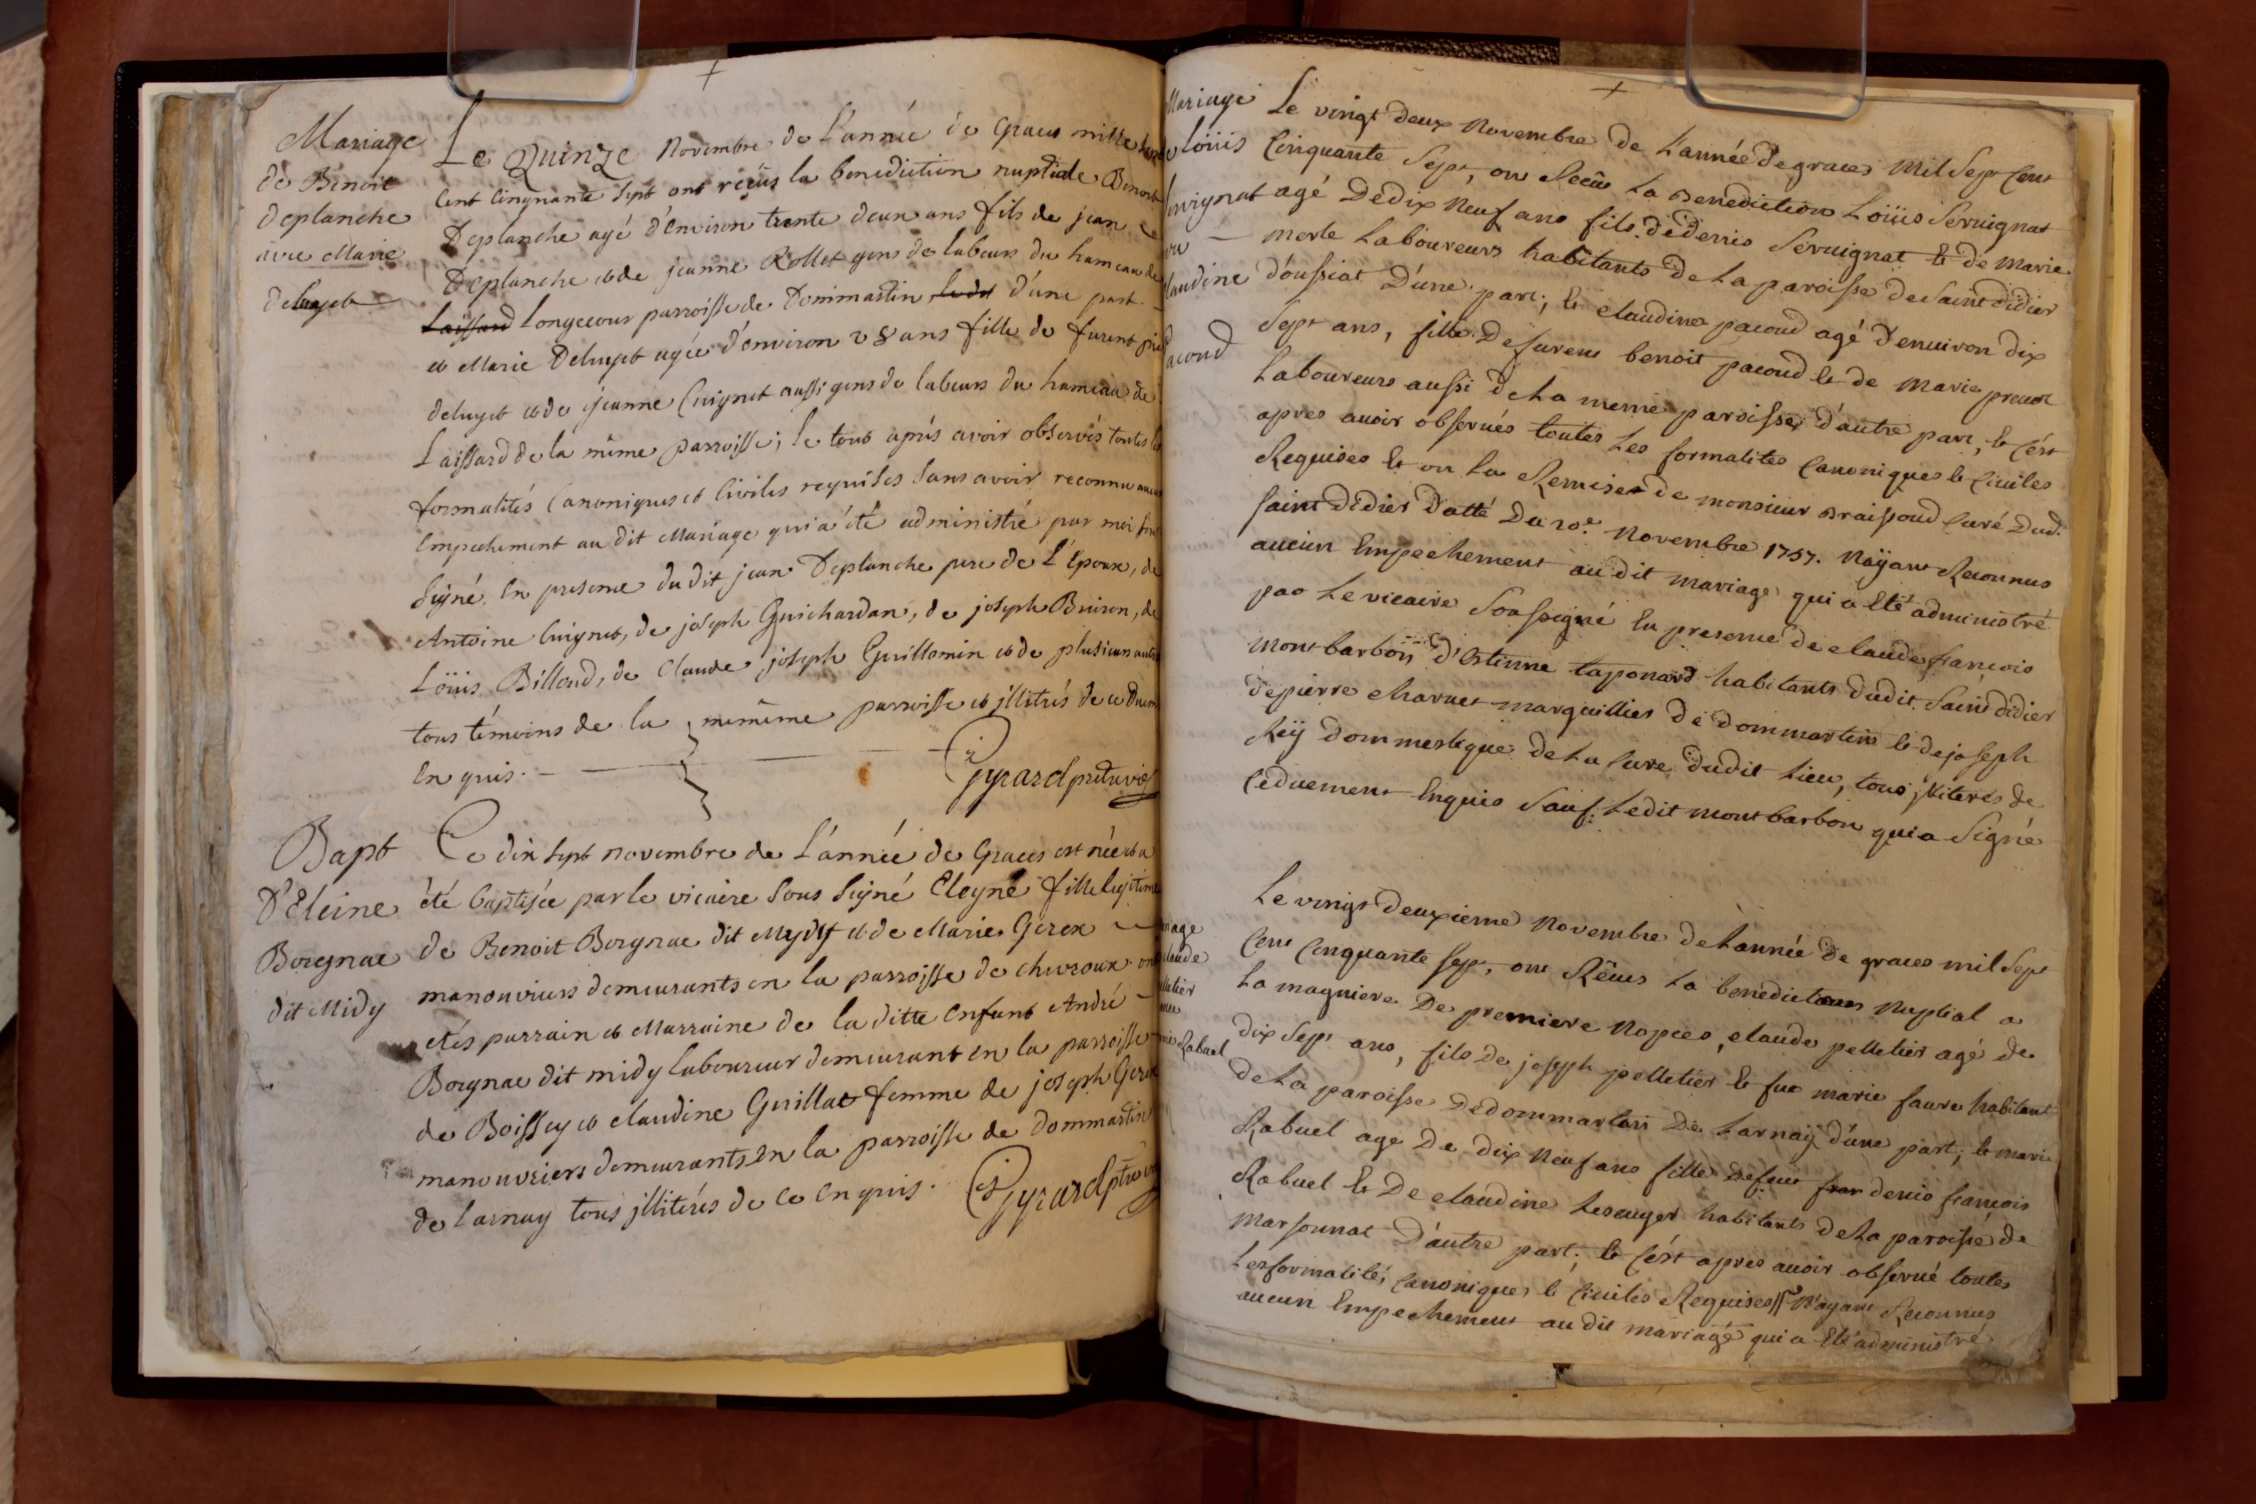 Mariage
de Benoit
Deplanche
avec Marie
Deluyet
Le Quinze Novembre de l'année de Graces mille sept
Cent Cinquante Sept ont reçüs la benediction nuptiale Benoit
Deplanche agé d'Environ trente deux ans fils de jean
Deplanche et de jeanne Rollet gens de labeurs du hameau de
Laissard Longecour parroisse de Dommartin d'une part
et Marie Deluyet agée d'environ 28 ans fille de furent
deluyet et de jeanne Cuignet aussi gens de labeurs du hameau de
Laissard de la même parroisse; le tout aprés avoir observés toutes les
formalités Canoniques et Civiles requises Sans avoir reconnu aucun
Empechement au dit Mariage qui a été administré par moi
Signé. En presence du dit jean Deplanche pere de L'Epoux, de
Antoine Cuignet, de joseph Guichardan, de joseph Buiron, de
Loüis Billoud, de Claude joseph Guillemin et de plusieurs autres
tous témoins de la mimême parroisse et illitérés de ce Duement
En quis.
Gyrard
Bapt
D'Eleine
Borgnae
dit Midy
Le dix sept novembre de L'année de Graces est née et a
été baptisée par le vicaire Sous Signé Eleyne fille legitime
de Benoit Borgnae dit Mydy et de Marie Gerex
manouvriers demeurants en la parroisse de chevroux ont
etés parrain et Marraine de la ditte Enfant André
Borgnae dit midy laboureur demeurant en la parroisse
de Boissey et claudine Guillat femme de joseph Gerex
manouvriers demeurants En la parroisse de Dommartin
de Larnay tous jllitérés de ce En quis.
Gyrard
Mariage
de Loüis
Servignat
Claudine
pacoud
Le vingt deux Novembre de Lannée de graces Mil Sept Cent
Cinquante Sept, on Recüs La Benediction Loüis Servignat
agé De dix Neuf ans fils de denis Servignat Et de Marie
merle Laboureurs habitants de La paroisse de Saint didier
d'oussiat D'une part; Et claudine pacoud agé d'environ dix
Sept ans, fille De furent benoit pacoud Et de Marie prevot
Laboureurs aussi de La meme paroisse d'autre part, Et C'ést
apres avoir observés toutes Les formalités Canoniques Et Civiles
Requises Et vu La Remise de monsieur Braissoud Curé Dud.
Saint Didier Datté Du 20e. Novembre 1757. Nayant Reconnus
aucun Empechement au dit mariage qui a Eté administré
par Le vicaire Soussigné En presence de claude francois
Montbarbon d'Etienne taponard habitants dudit Saint didier
de pierre charvet marguillier de dommartin Et de joseph
Reÿ dommestique de La Cure dudit Lieu, tous jlliterés de
Ceduement Enquis Sauf Ledit Montbarbon qui a Signé
Rabuel
Le vingt deuxieme Novembre de Lannée de graces mil Sept
Cent Cinquante Sept, ont Rêcus La benediction Nuptial a
La magniere De premiere Nopces, claude pelletier agé de
dix Sept ans, fils de joseph pelletier Et fue marie faure habitant
de La paroisse de dommartin De Larnaÿ d'une part, Et marie
Rabuel age De dix Neuf ans fille De feu denis francois
Rabuel Et De claudine Lesauger habitants de La paroisse de
Marsonnat D'autre part; Et C'ést apres avoir observé toutes
Les formalités Canoniques Et Civiles Requises N'ayant Reconnus
aucun Empechement au dit mariage qui a Eté administré